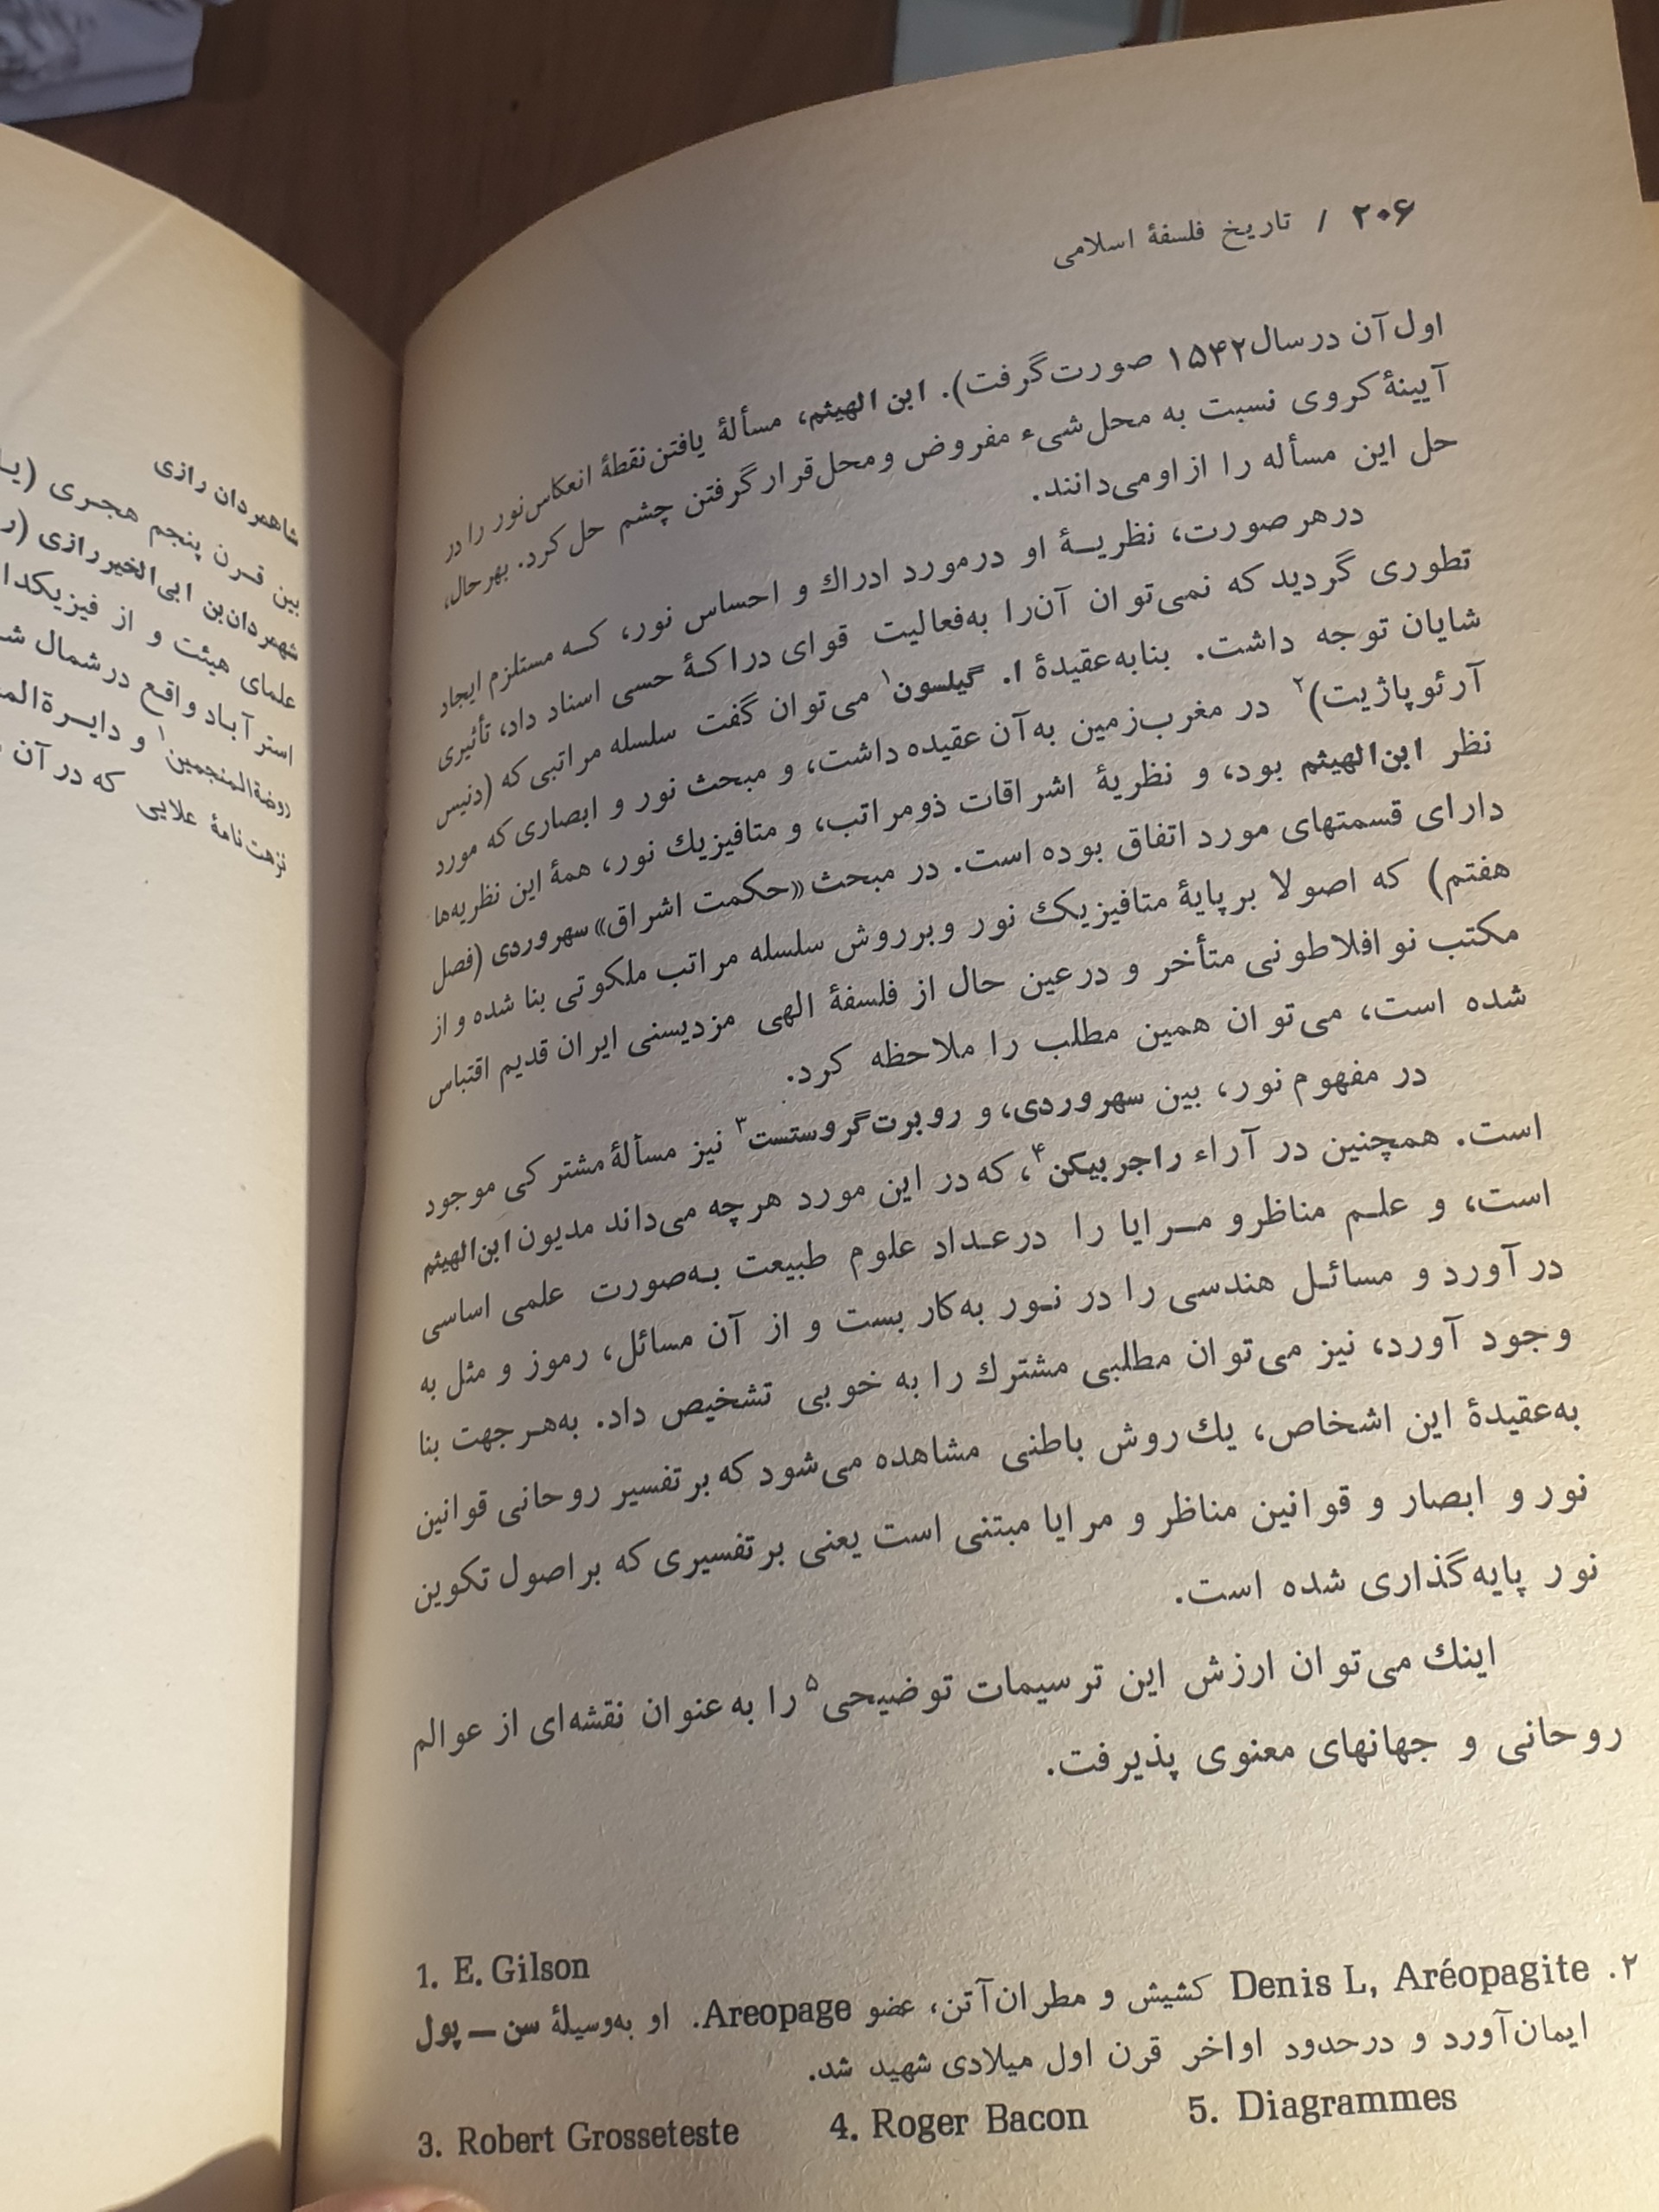 ۲۰۶ / تاریخ فلسفهٔ اسلامی
اول آن در سال ۱۵۴۲ صورت گرفت). ابن الهیثم، مسألهٔ یافتن نقطهٔ انعکاس نور را در
آیینهٔ کروی نسبت به محل شیء مفروض و محل قرار گرفتن چشم حل کرد. بهرحال،
حل این مسأله را از او می‌دانند.
درهر صورت، نظریـهٔ او درمورد ادراك و احساس نور، کـه مستلزم ایجاد
تطوری گردید که نمی‌توان آن‌را به‌فعالیت قوای دراکـهٔ حسی اسناد داد، تأثیری
شایان توجه داشت. بنابه‌عقیدهٔ ا. گیلسون۱ می‌توان گفت سلسله مراتبی که (دنیس
آرئوپاژیت)۲ در مغرب‌زمین به‌آن عقیده داشت، و مبحث نور و ابصاری که مورد
نظر ابن‌الهیثم بود، و نظریهٔ اشراقات ذومراتب، و متافیزیك نور، همهٔ این نظریه‌ها
دارای قسمتهای مورد اتفاق بوده است. در مبحث «حکمت اشراق» سهروردی (فصل
هفتم) که اصولا برپایهٔ متافیزیك نور و برروش سلسله مراتب ملکوتی بنا شده و از
مکتب نو افلاطونی متأخر و درعین حال از فلسفهٔ الهی مزدیسنی ایران قدیم اقتباس
شده است، می‌توان همین مطلب را ملاحظه کرد.
در مفهوم نور، بین سهروردی، و روبرت‌گروستست۳ نیز مسألهٔ مشترکی موجود
است. همچنین در آراء راجربیکن۴، که در این مورد هرچه می‌داند مدیون ابن‌الهیثم
است، و علـم مناظرو مـرایا را درعـداد علوم طبیعت بـه‌صورت علمی اساسی
در آورد و مسائـل هندسی را در نـور به‌کار بست و از آن مسائل، رموز و مثل به
وجود آورد، نیز می‌توان مطلبی مشترك را به خوبی تشخیص داد. به‌هـرجهت بنا
به‌عقیدهٔ این اشخاص، یك روش باطنی مشاهده می‌شود که برتفسیر روحانی قوانین
نور و ابصار و قوانین مناظر و مرایا مبتنی است یعنی برتفسیری که براصول تکوین
نور پایه‌گذاری شده است.
اینك می‌توان ارزش این ترسیمات توضیحی۵ را به‌عنوان نقشه‌ای از عوالم
روحانی و جهانهای معنوی پذیرفت.
1. E. Gilson
۲. Denis L, Aréopagite کشیش و مطران‌آتن، عضو Areopage. او به‌وسیلهٔ سن ــ پول
ایمان‌آورد و درحدود اواخر قرن اول میلادی شهید شد.
3. Robert Grosseteste 4. Roger Bacon 5. Diagrammes
شاهمردان رازی
بین قـرن پنجم هجـری
شهمردان‌بن ابی‌الخیررازی
علمای هیئت و از
استرآباد واقع درشمال
روضةالمنجمین۱ و
نزهت‌نامهٔ علایی که در آن